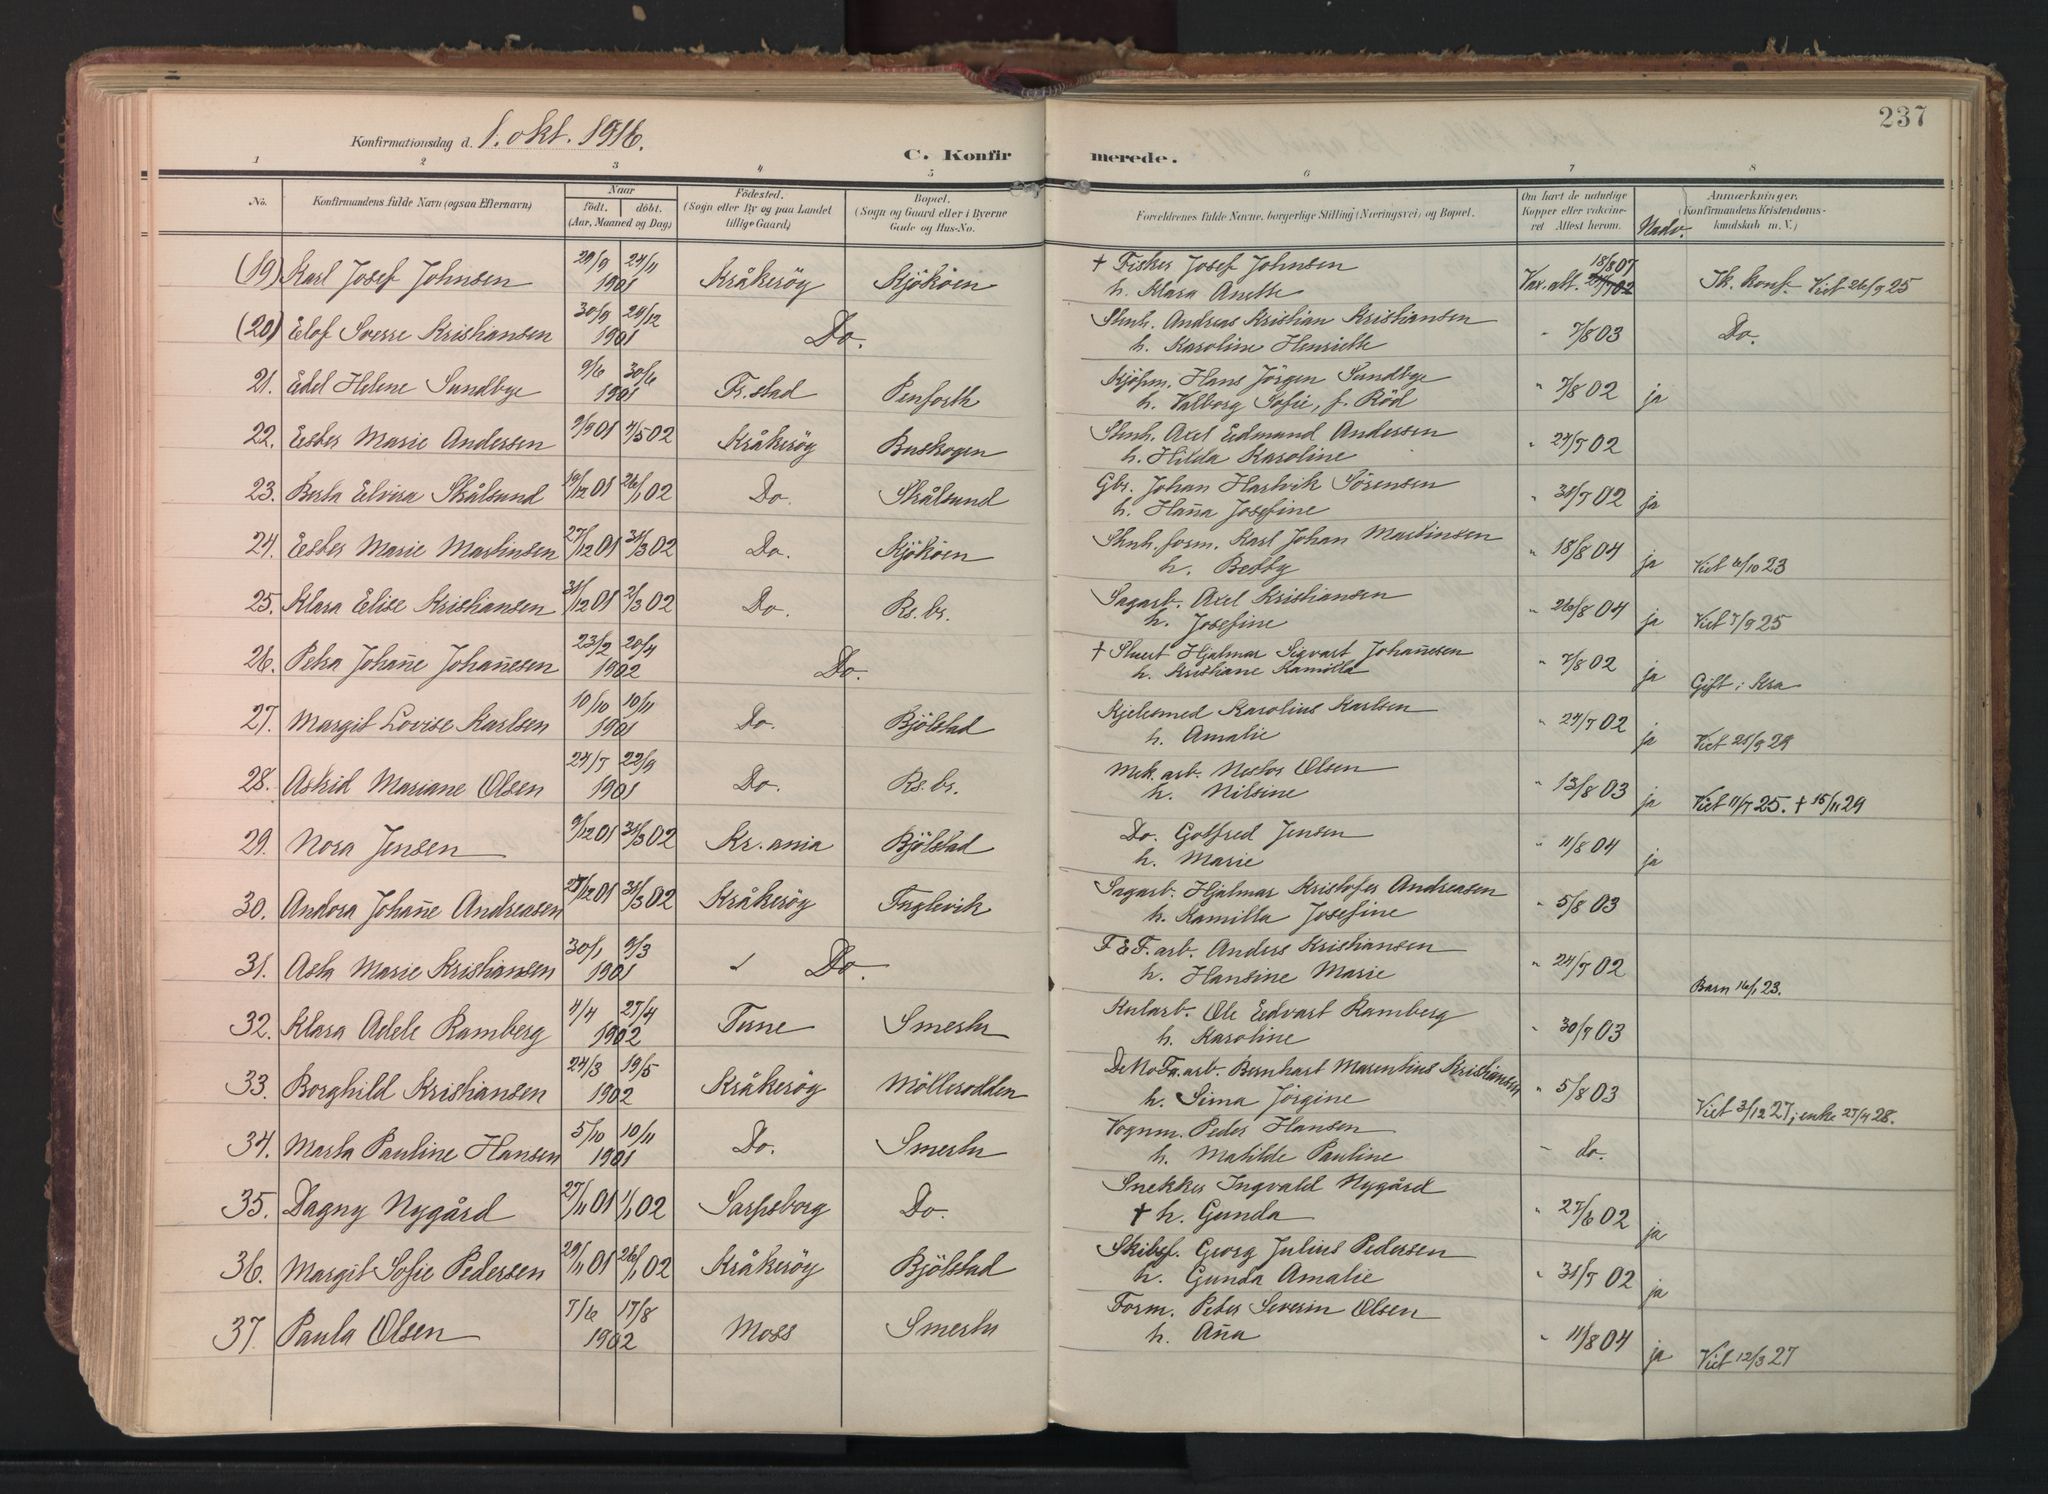 237
Konfirmationsdag d. 1. okt. 1916.
C. Konfirmerede.
1 2 3 4 5 6 7 8
No. Konfirmandens fulde Navn (ogsaa Efternavn). Naar født. døbt. (Aar, Maaned og Dag.) Fødested. (Sogn eller By og paa Landet tillige Gaard.) Bopæl. (Sogn og Gaard eller i Byerne Gade og Hus-No. Forældrenes fulde Navne, borgerlige Stilling (Næringsvei) og Bopæl. Om havt de naturlige Kopper eller vaccineret. Attest herom. Nadv. Anmærkninger. (Konfirmandens Kristendomskundskab m. V.)
(19) Karl Josef Johnsen 29/9 24/11 1901 Kråkeröy Kjököen + Fisker Josef Johnsen Vax. att. 18/8 07
h. Klara Anette Ik. konf. Viet 26/9 25
(20) Elof Sverre Kristiansen 30/9 29/12 1901 Do. Sknh. Andreas Kristian Kristiansen " 7/8 03 Do.
h. Karoline Henriette
21. Edel Helene Sundbye 9/6 30/6 1901 Fr.stad Penforth Kjöpm. Hans Jörgen Sundbye " 7/8 02 ja
h. Valborg Sofie, f. Röd
22. Ester Marie Andersen 9/9 01 4/5 02 Kråkeröy Buskogen Sknh. Axel Edmund Andersen " 24/7 02
h. Hilda Karoline
23. Berta Elvira Skålsund 19/12 01 26/1 02 Do. Skålsund Gbr. Johan Hartvik Sörensen " 31/7 02 ja
h. Han̄a Josefine
24. Ester Marie Martinsen 27/12 01 31/3 02 Do. Kjököen Sknh. form. Karl Johan Martinsen " 18/8 04 ja Viet 6/10 23
h. Betty
25. Klara Elise Kristiansen 31/12 01 2/3 02 Do. Rs. br. Sagarb. Axel Kristiansen " 26/8 04 ja Viet 7/9 25
h. Josefine
26. Petra Johan̄e Johan̄esen 23/2 20/4 1902 Do. + Stuert Hjalmar Sigvart Johan̄esen " 7/8 02 ja Gift i Kra
h. Kristiane Kamilla
27. Margit Lovise Karlsen 10/10 10/11 1901 Do. Bjölstad Kjelesmed Karolius Karlsen " 24/7 02 ja Viet 21/9 29
h. Amalie
28. Astrid Mariane Olsen 24/7 22/9 1901 Do. Rs. br. Mek. arb. Nestor Olsen " 13/8 03 ja Viet 11/7 25. + 15/11 29
h. Nilsine
29. Nora Jensen 9/12 01 31/3 02 Kr.ania Bjölstad Do. Gotfred Jensen " 11/8 04 ja
h. Marie
30. Andora Johan̄e Andreasen 27/12 01 31/3 02 Kråkeröy Englevik Sagarb. Hjalmar Kristofer Andreasen " 5/8 03
h. Kamilla Josefine
31. Asta Marie Kristiansen 30/1 9/3 1901 Do. F & F. arb. Anders Kristiansen " 24/7 02
h. Hansine Marie Barn 16/1 23.
32. Klara Adele Ramberg 4/4 27/4 1902 Tune Smertu Kularb. Ole Edvart Ramberg " 30/7 03
h. Karoline
33. Borghild Kristiansen 24/3 19/5 1902 Kråkeröy Möllerodden DeNoFa.arb. Bernhart Marentius Kristiansen " 5/8 03
h. Sima Jörgine Viet 3/12 27; enke 27/4 28.
34. Marta Pauline Hansen 5/10 10/11 1901 Do. Smertu Vognm. Peder Hansen - do.
h. Matilde Pauline
35. Dagny Nygård 27/11 01 1/1 02 Sarpsborg Do. Snekker Ingvald Nygård " 27/6 02 ja
+ h. Gunda
36. Margit Sofie Pedersen 29/11 01 26/1 02 Kråkeröy Bjölstad Skibsf. Georg Julius Pedersen " 31/7 02 ja
h. Gunda Amalie
37. Paula Olsen 7/6 17/8 1902 Moss Smertu Form. Peter Severin Olsen " 11/8 04 ja Viet 12/3 27
h. An̄a